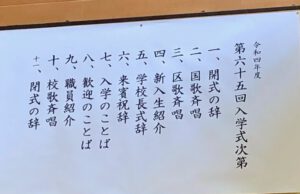 令和四年度
第六十五回入学式次第
一、開式の辞
二、国歌斉唱
三、区歌斉唱
四、新入生紹介
五、学校長式辞
六、来賓祝辞
七、入学のことば
八、歓迎のことば
九、職員紹介
十、校歌斉唱
十一、閉式の辞